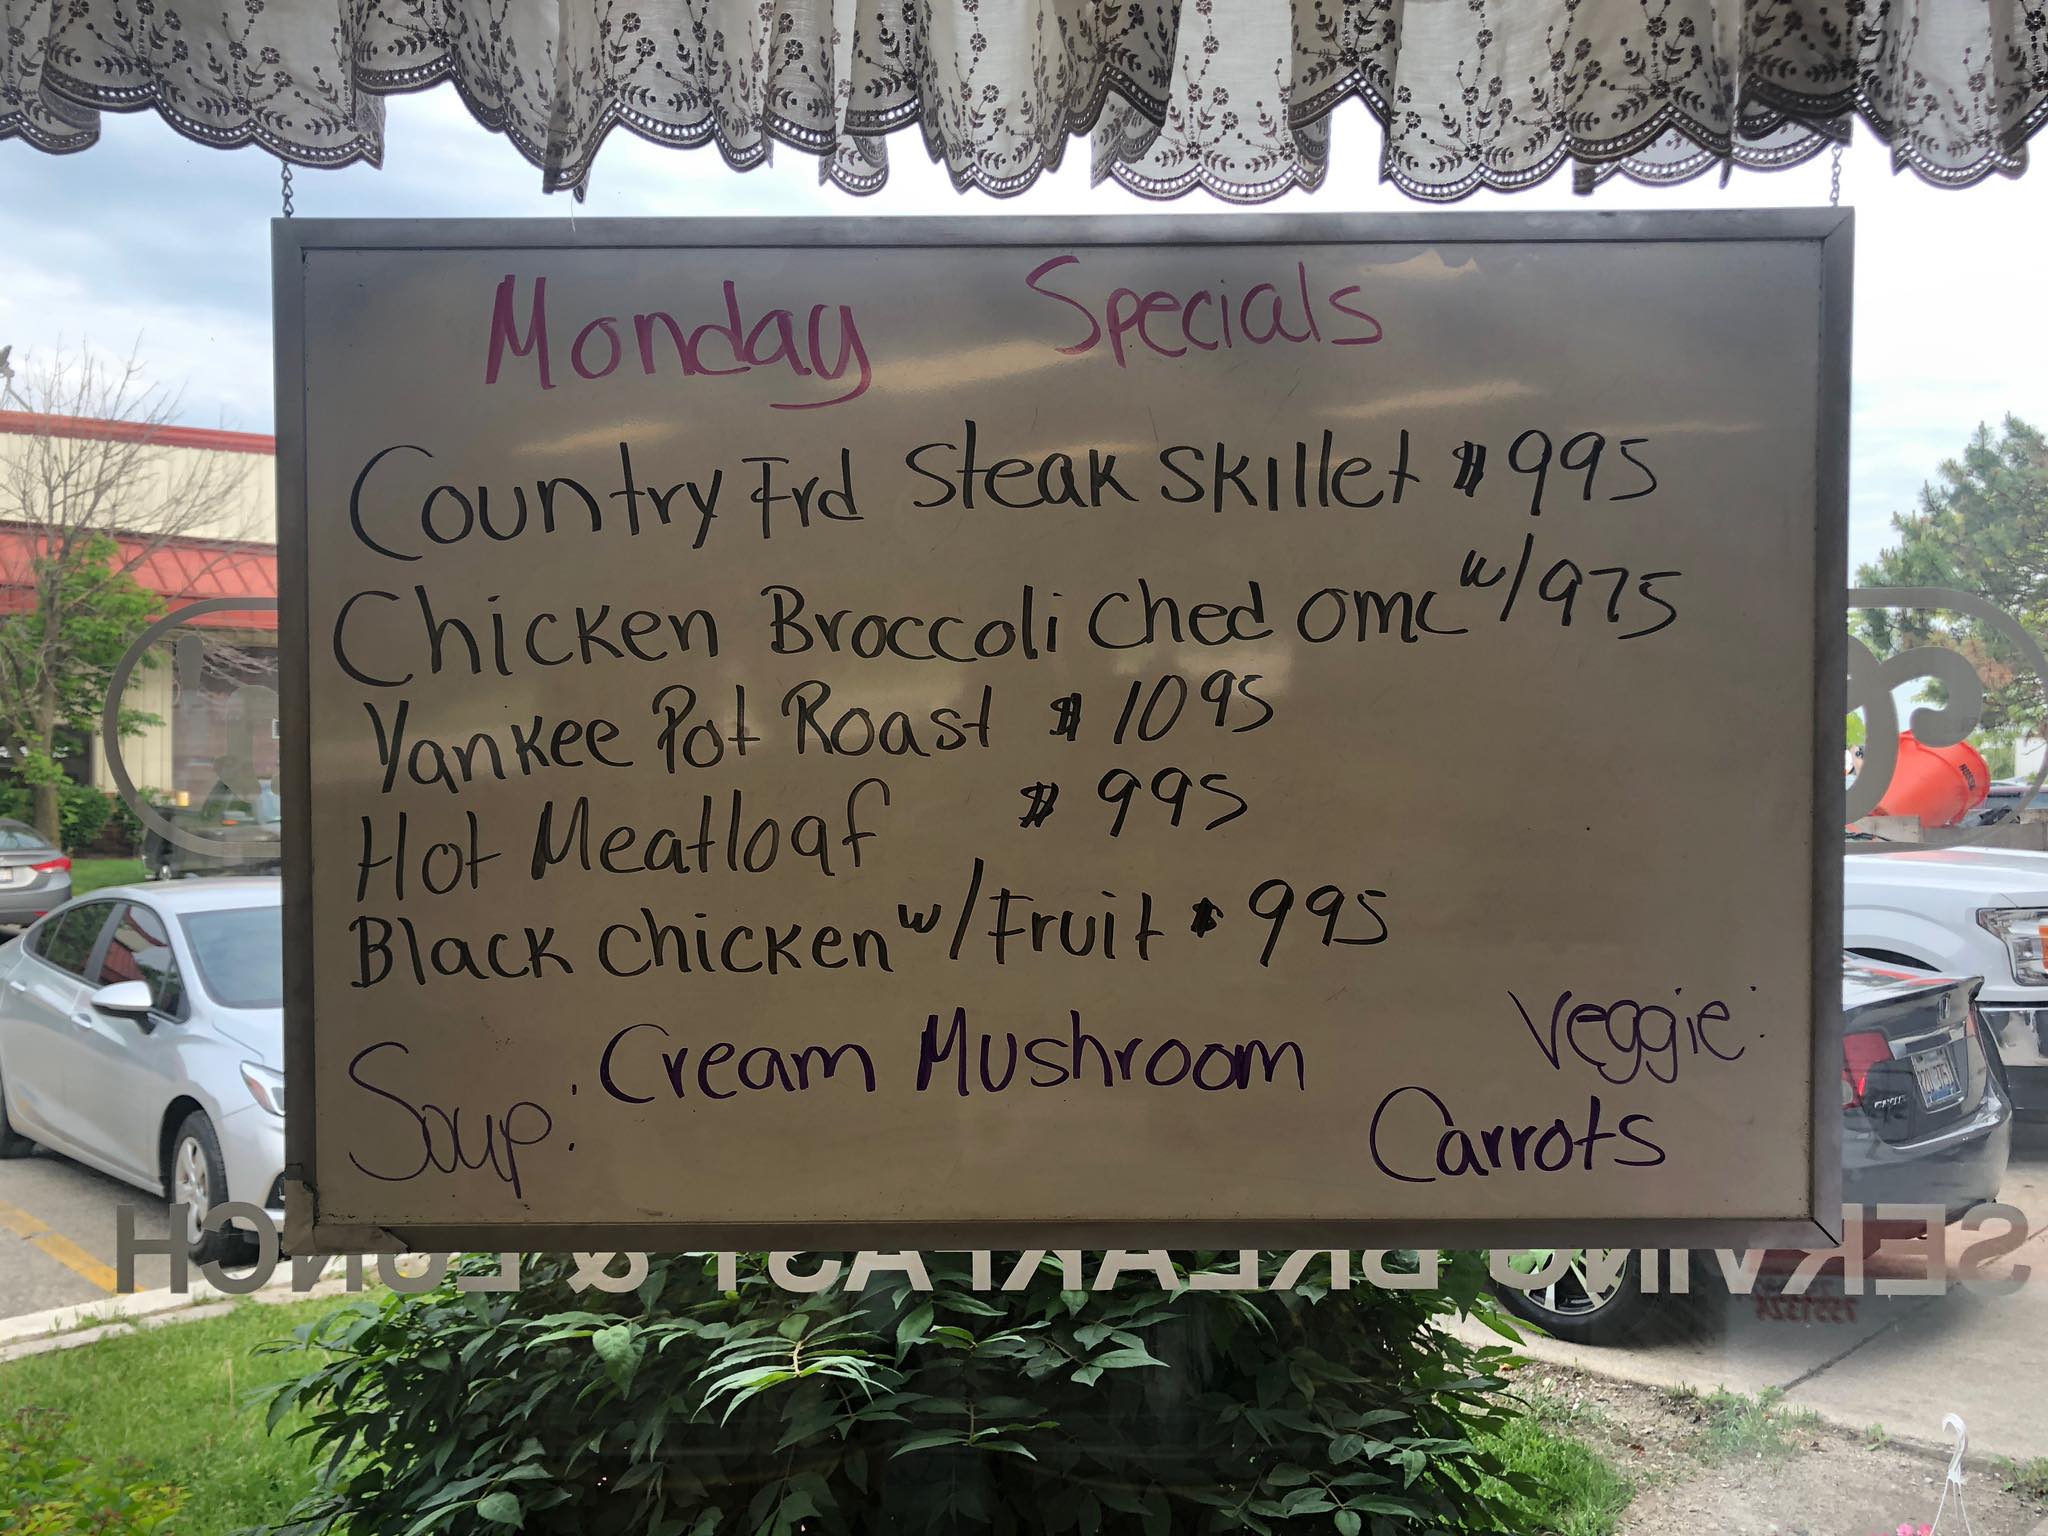 Monday Specials
Country Frd Steak Skillet $995
Chicken Broccoli Ched Omc w/ 975
Yankee Pot Roast $1095
Hot Meatloaf $995
Black Chicken w/ Fruit $995
Soup: Cream Mushroom
Veggie:
Carrots
SERVING BREAKFAST & LUNCH